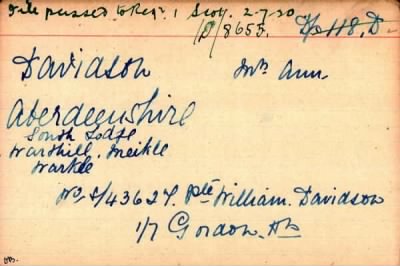 File passed to Regr. 1 Scot. 2-7-20
/D/8655. D/2 118. D.
Davidson Mrs Ann
Aberdeenshire
South Lodge
Warthill. Meikle
Wartle
No, S/43627. Pte William. Davidson
1/7 Gordon. Hrs